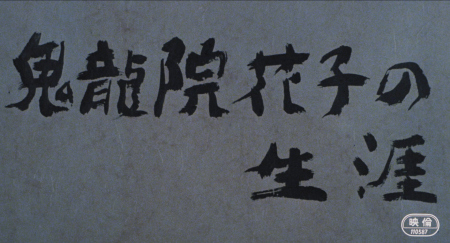 鬼龍院花子の
生涯
映倫
110587